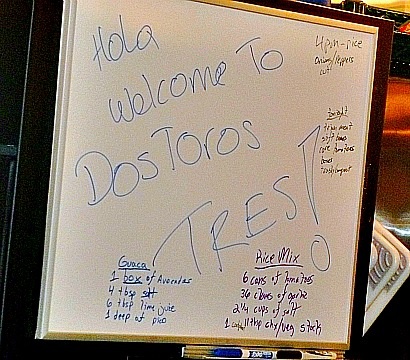 Hola
Welcome To
Dos Toros
TRES!
4pm-rice
onions/peppers
cut!
tritip meat
soft tacos
core tomatoes
limes
Guaca
1 box of Avocados
4 tbsp salt
6 tbsp lime juice
1 deep of pico
Rice Mix
6 cans of tomatoes
36 cubes of
2 1/4 cups of salt
1 tbsp chx/veg stock